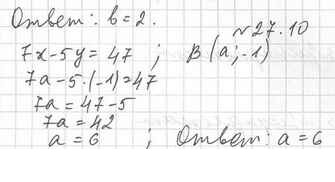 Ответ: b = 2.
№27.10
7x - 5y = 47 ; B (a; -1)
7a - 5·(-1) = 47
7a = 47 - 5
7a = 42
a = 6 ; Ответ: a = 6